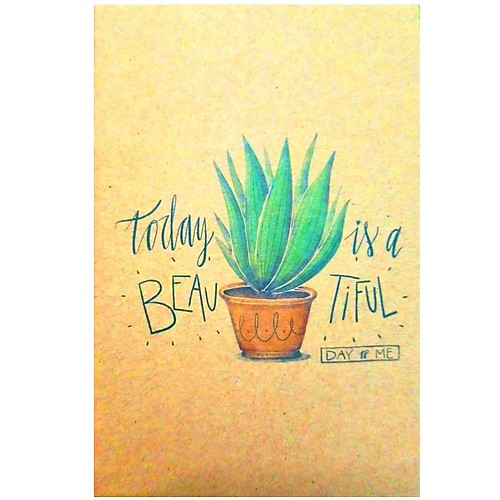 Today is a
BEAU TIFUL
DAY to ME